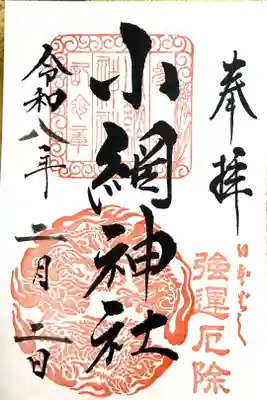 奉拝
日本ばし
強運厄除
小網神社
令和八年
二月二日